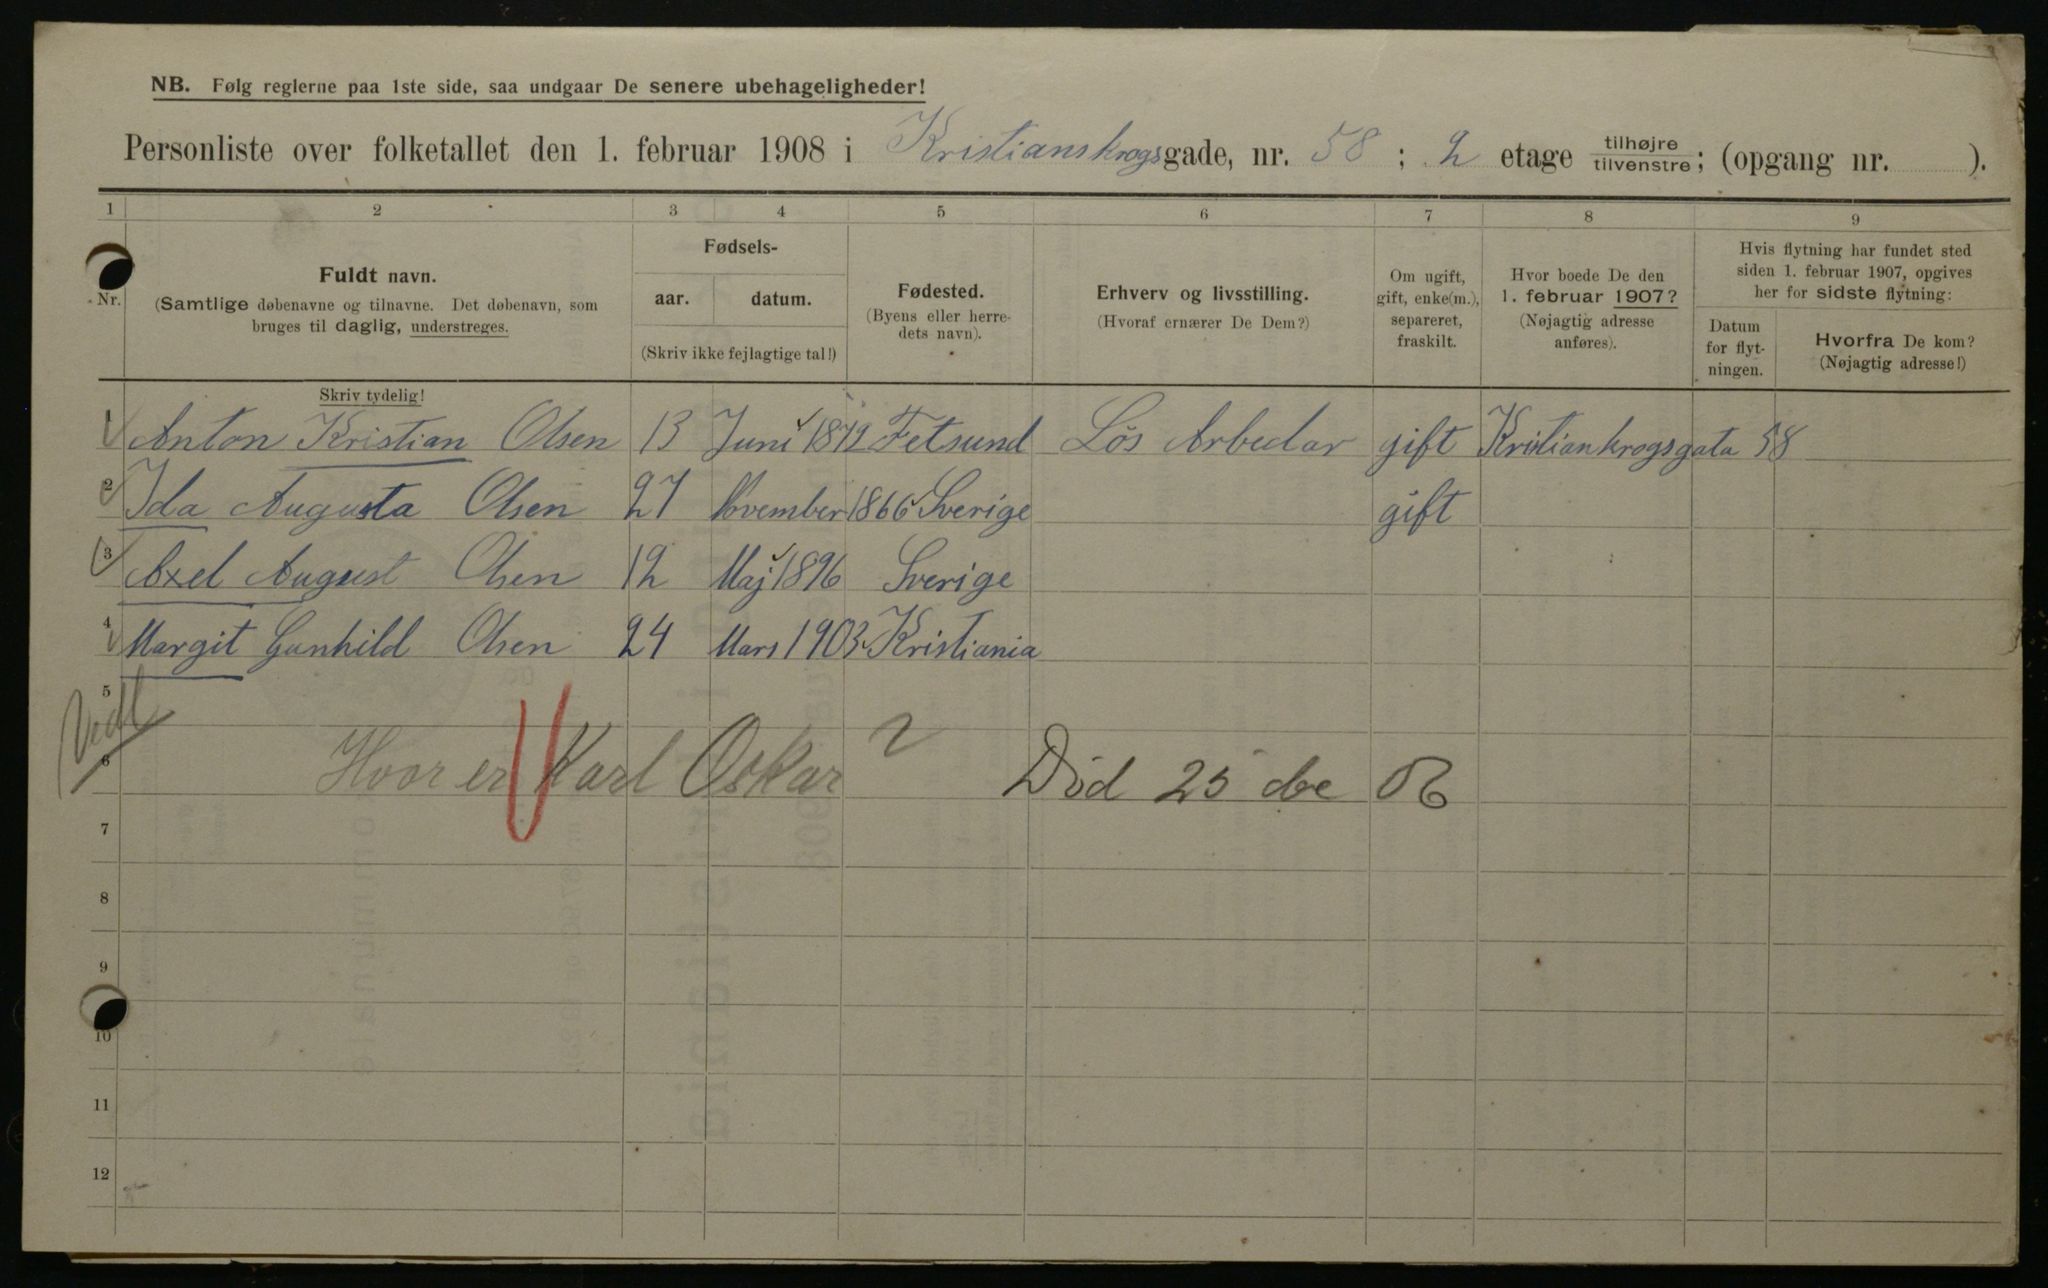 NB. Følg reglerne paa 1ste side, saa undgaar De senere ubehageligheder!
Personliste over folketallet den 1. februar 1908 i Kristianskrogsgade, nr. 58 ; 2 etage tilhøjre/tilvenstre; (opgang nr. ).
1 2 3 4 5 6 7 8 9
Nr.
Fuldt navn.
(Samtlige døbenavne og tilnavne. Det døbenavn, som
bruges til daglig, understreges.
Skriv tydelig!
Fødsels-
aar. datum.
(Skriv ikke fejlagtige tal!)
Fødested.
(Byens eller herre-
dets navn).
Erhverv og livsstilling.
(Hvoraf ernærer De Dem?)
Om ugift,
gift, enke(m.),
separeret,
fraskilt.
Hvor boede De den
1. februar 1907?
(Nøjagtig adresse
anføres).
Hvis flytning har fundet sted
siden 1. februar 1907, opgives
her for sidste flytning:
Datum
for flyt-
ningen.
Hvorfra De kom?
(Nøjagtig adresse!)
1 Anton Kristian Olsen 13 Juni 1872 Fetsund Løs Arbedar gift Kristiankrogsgata 58
2 Ida Augusta Olsen 27 November 1866 Sverige gift
3 Axel August Olsen 12 Maj 1896 Sverige
4 Margit Gunhild Olsen 24 Mars 1903 Kristiania
5
6 Hvor er Karl Oskar ? Död 25 de 06
7
8
9
10
11
12